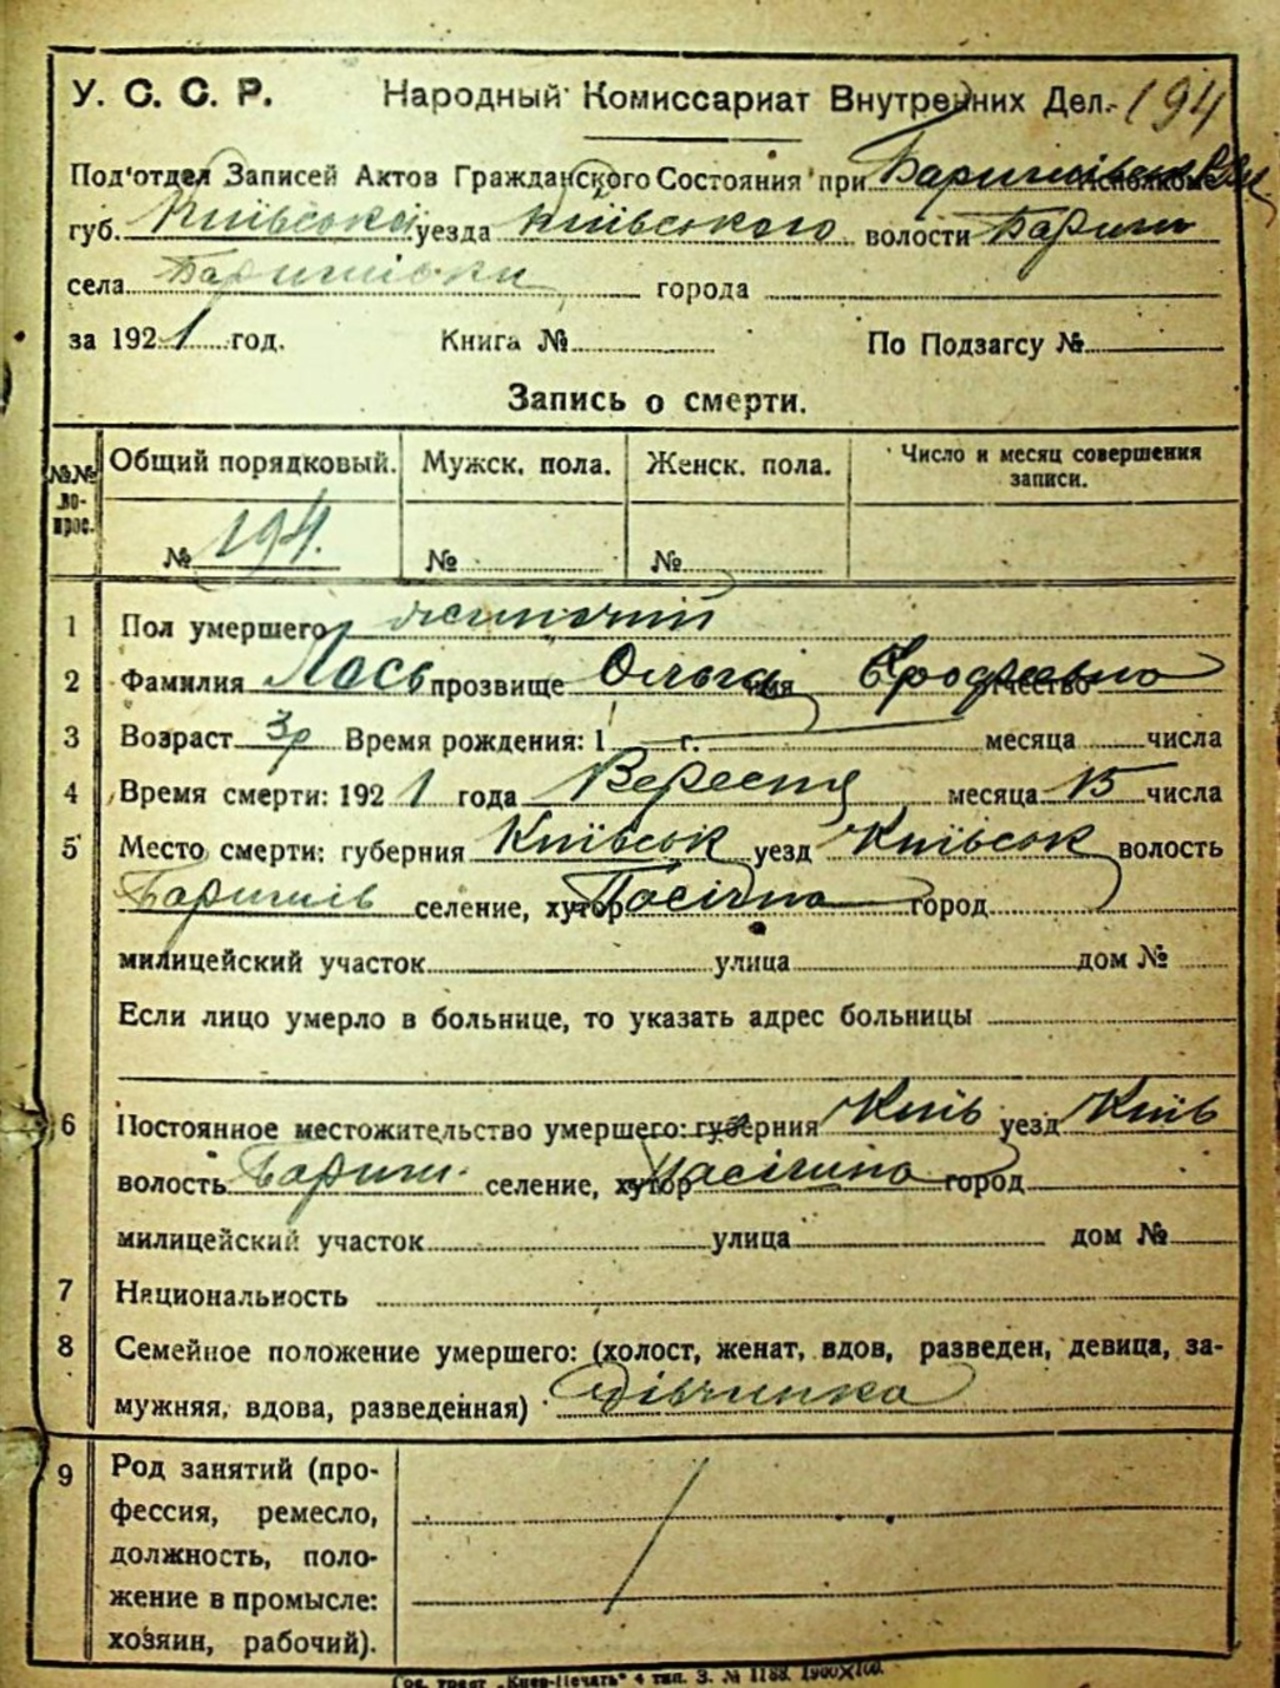 У. С. С. Р. Народный Комиссариат Внутренних Дел. 194
Под'отдел Записей Актов Гражданского Состояния при Исполкоме
губ. Київської уезда Київського волости Бариш
села Баришівки города
за 1921 год. Книга № По Подзагсу №
Запись о смерти.
№№ во-прос. Общий порядковый. Мужск. пола. Женск. пола. Число и месяц совершения записи.
№ 194. № №
1 Пол умершего жіночий
2 Фамилия Лась прозвище Ольга имя отчество
3 Возраст 3р Время рождения: 1 г. месяца числа
4 Время смерти: 1921 года Вересня месяца 15 числа
5 Место смерти: губерния Київськ уезд Київськ волость
селение, хутор Пасічна город
милицейский участок улица дом №
Если лицо умерло в больнице, то указать адрес больницы
6 Постоянное местожительство умершего: губерния Київ уезд Київ
волость Бариш. селение, хутор город
милицейский участок улица дом №
7 Национальность
8 Семейное положение умершего: (холост, женат, вдов, разведен, девица, за-
мужняя, вдова, разведенная) дівчинка
9 Род занятий (про-
фессия, ремесло,
должность, поло-
жение в промысле:
хозяин, рабочий).
Гос. трест „Киев-Печать“ 4 тип. З. № 1188. 1900×100.